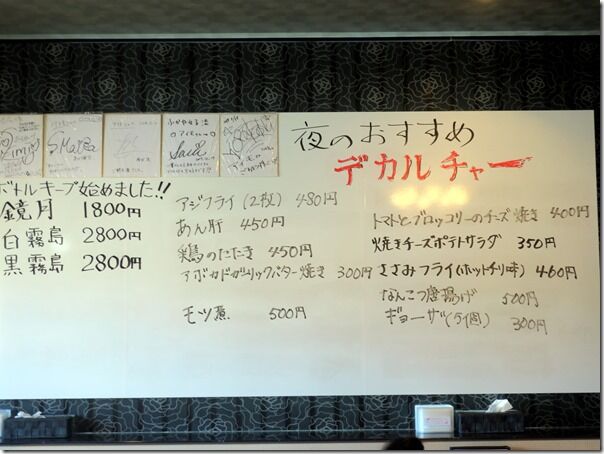 夜のおすすめ
デカルチャー
ボトルキープ始めました!!
鏡月 1800円
白霧島 2800円
黒霧島 2800円
アジフライ(2枚) 480円
あん肝 450円
鶏のたたき 450円
アボカドガーリックバター焼き 300円
モツ煮 500円
トマトとブロッコリーのチーズ焼き 400円
焼きチーズポテトサラダ 350円
ささみフライ(ホットチリ味) 460円
なんこつ唐揚げ 500円
ギョーザ(5個) 300円